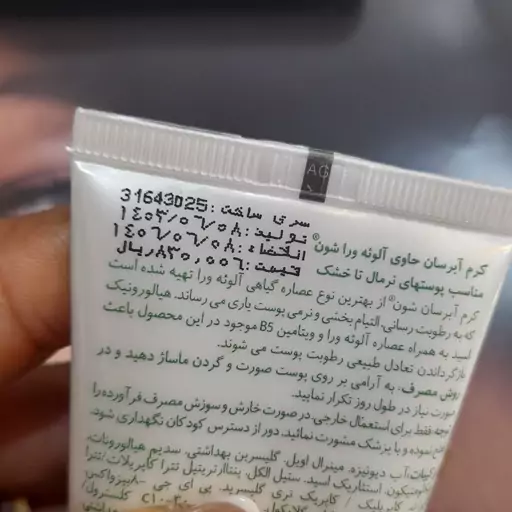 AG
سری ساخت:31643025
تولید:۱۴۰۳/۰۶/۰۸
انقضاء:۱۴۰۶/۰۶/۰۸
قیمت:۸۳۰,۰۰۰ریال
کرم آبرسان حاوی آلوئه ورا شون®
مناسب پوستهای نرمال تا خشک
کرم آبرسان شون® از بهترین نوع عصاره گیاهی آلوئه ورا تهیه شده است
که به رطوبت رسانی، التیام بخشی و نرمی پوست یاری می رساند. هیالورونیک
اسید به همراه عصاره آلوئه ورا و ویتامین B5 موجود در این محصول باعث
بازگرداندن تعادل طبیعی رطوبت پوست می شوند.
روش مصرف: به آرامی بر روی پوست صورت و گردن ماساژ دهید و در
صورت نیاز در طول روز تکرار نمایید.
توجه: فقط برای استعمال خارجی در صورت خارش و سوزش مصرف فرآورده را
نموده و با پزشک مشورت نمائید. دور از دسترس کودکان نگهداری شود.
ترکیبات: آب دیونیزه، مینرال اویل، گلیسرین بهداشتی، سدیم هیالورونات،
استئاریک اسید، ستیل الکل، پنتااریتریتیل تترا کاپریلات/تترا
کاپریلیک / کاپریک تری گلیسرید، پی ای جی